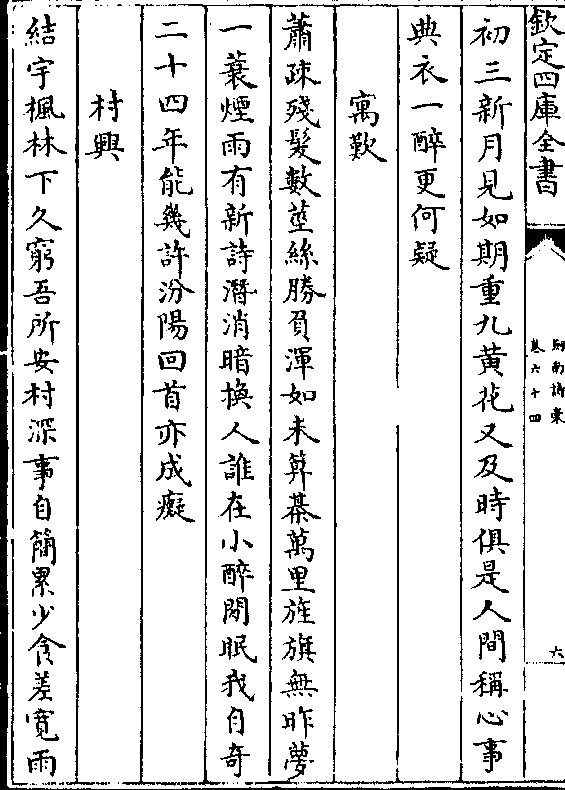 欽定四庫全書
劍南詩稾
卷六十四
六
初三新月見如期重九黃花又及時俱是人間稱心事
典衣一醉更何疑
寓歎
蕭疎殘髮數莖絲勝負渾如未算棊萬里旌旗無昨夢
一蓑煙雨有新詩潛消暗換人誰在小醉閑眠我自奇
二十四年能幾許汾陽回首亦成癡
村興
結宇楓林下久窮吾所安村深事自簡累少食差寬雨